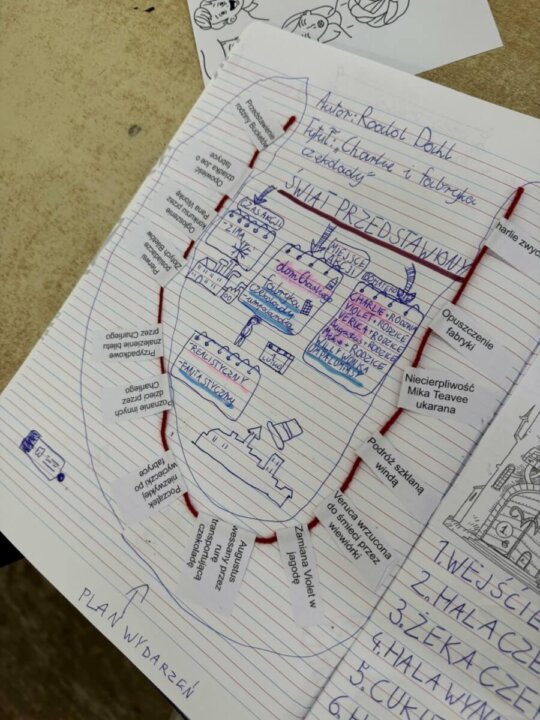 Autor: Roald Dahl
Tytuł: „Charlie i fabryka
czekolady”
ŚWIAT PRZEDSTAWIONY
CZAS AKCJI
-ZIMA
MIEJSCE
AKCJI
dom Charliego
fabryka
czekolady
BOHATEROWIE
CHARLIE + RODZINA
VIOLET + RODZICE
VERUCA + RODZICE
Augustus + RODZICE
Mike + RODZICE
WILLY WONKA
UMPA LUMPASI
REALISTYCZNY
FANTASTYCZNY
Przedstawienie
rodziny Bucketów
Opowieść
dziadka Joe o
fabryce
Ogłoszenie
konkursu przez
Pana Wonkę
Pierwsi
posiadacze
Złotych Biletów
Przypadkowe
znalezienie biletu
przez Charliego
Poznanie innych
dzieci przez
Charliego
Początek
niezwykłej
wycieczki po
fabryce
Augustus
wessany przez
rurę
transportującą
czekoladę
Zamiana Violet w
jagodę
Veruca wrzucona
do śmieci przez
wiewiórki
Podróż szklaną
windą
Niecierpliwość
Mika Teavee
ukarana
Opuszczenie
fabryki
harlie zwyc
PLAN WYDARZEŃ
1. WEJŚCIE
2. HALA CZE
3. ŻEKA CZE
4. HALA WYN
5. CUK
6. H